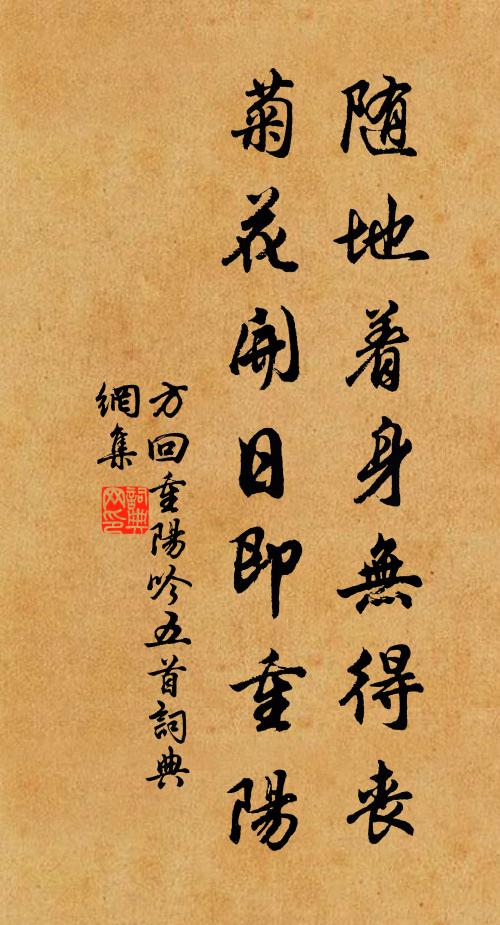 随地着身無得喪
菊花開日即重陽
方回重陽吟五首詞典
網集
詞典
网印